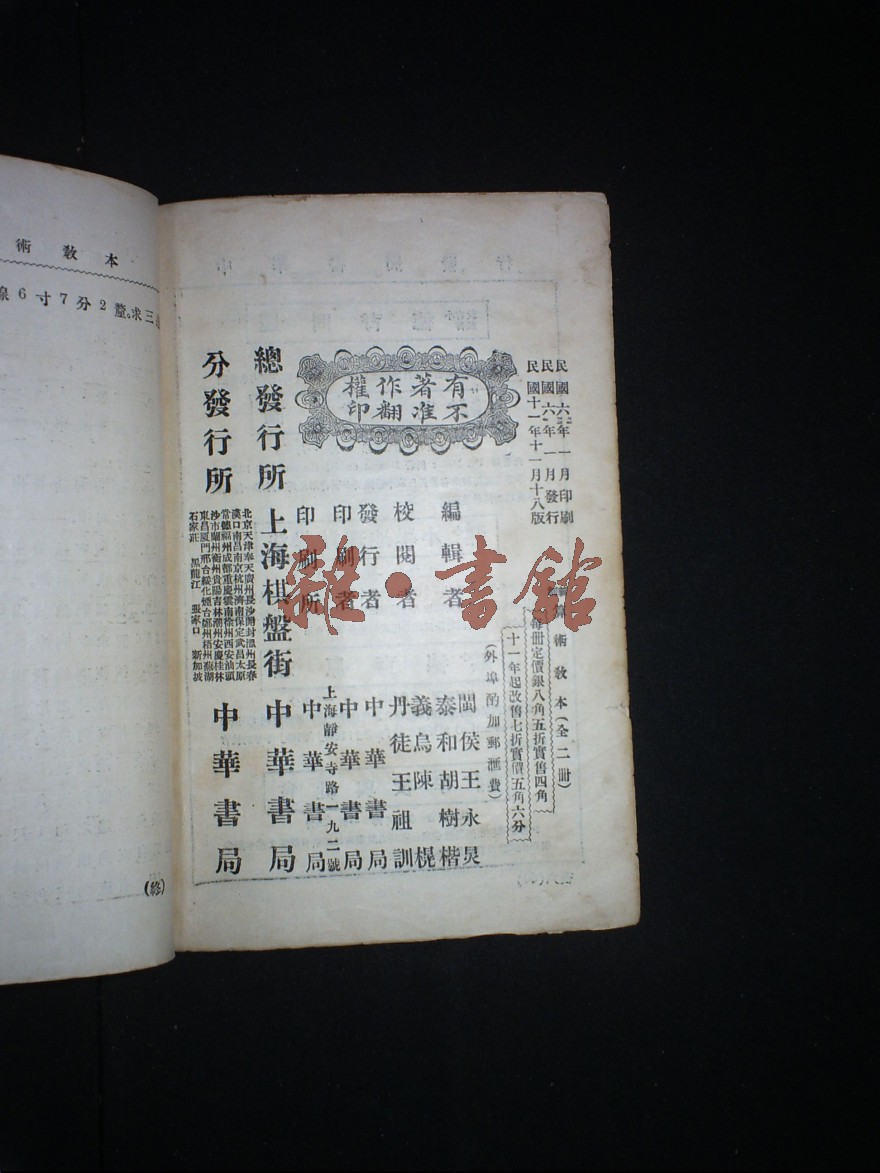 民國六年一月印刷
民國六年一月發行
民國十一年十一月十八版
算術教本(全二冊)
每冊定價銀八角五折實售四角
十一年起改售七折實價五角六分
(外埠酌加郵滙費)
有著作權
不准翻印
編輯者
閩侯王永炅
泰和胡樹楷
校閱者
義烏陳榥
丹徒王祖訓
發行者
中華書局
印刷者
中華書局
印刷所
上海靜安寺路一九二號
中華書局
總發行所
上海棋盤街
中華書局
分發行所
北京天津奉天廣州長沙開封溫州長春
漢口南昌南京杭州濟南保定武昌太原
常德福州成都重慶雲南徐州西安汕頭
沙市蘭州衢州貴陽吉林潮州安慶桂林
東昌厦門邢台綏化煙台鄭州梧州蕪湖
石家莊 黑龍江 張家口 新加坡
中華書局
雜·書館
術教本
6寸7分2釐。求三
(終)